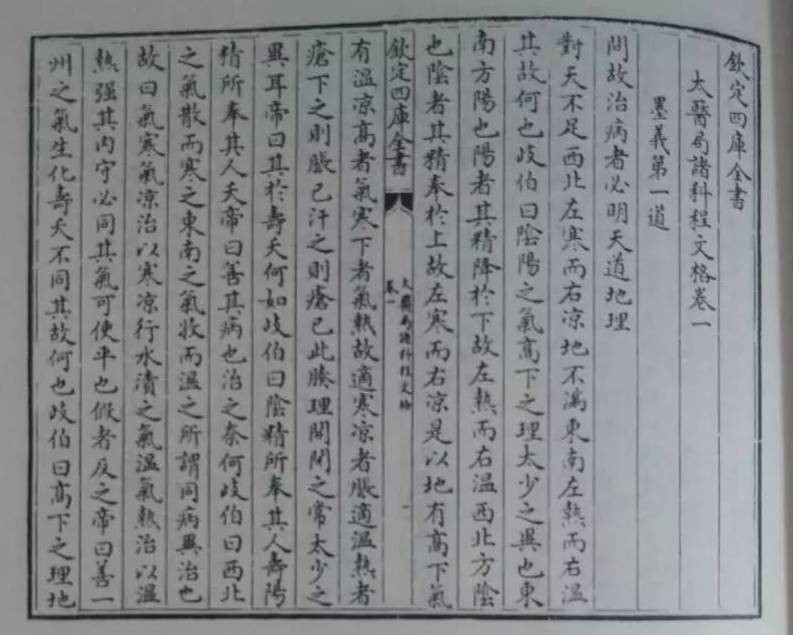 欽定四庫全書
太醫局諸科程文格卷一
墨義第一道
問故治病者必明天道地理
對天不足西北左寒而右涼地不滿東南左熱而右温
其故何也歧伯曰陰陽之氣髙下之理太少之異也東
南方陽也陽者其精降於下故左熱而右温西北方陰
也陰者其精奉於上故左寒而右涼是以地有髙下氣
欽定四庫全書
太醫局諸科程文格
卷一
有温涼髙者氣寒下者氣熱故適寒涼者脹適温熱者
瘡下之則脹已汗之則瘡已此腠理開閉之常太少之
異耳帝曰其於壽夭何如歧伯曰陰精所奉其人壽陽
精所奉其人夭帝曰善其病也治之奈何歧伯曰西北
之氣散而寒之東南之氣收而温之所謂同病異治也
故曰氣寒氣涼治以寒涼行水漬之氣温氣熱治以温
熱强其内守必同其氣可使平也假者反之帝曰善一
州之氣生化壽夭不同其故何也歧伯曰髙下之理地